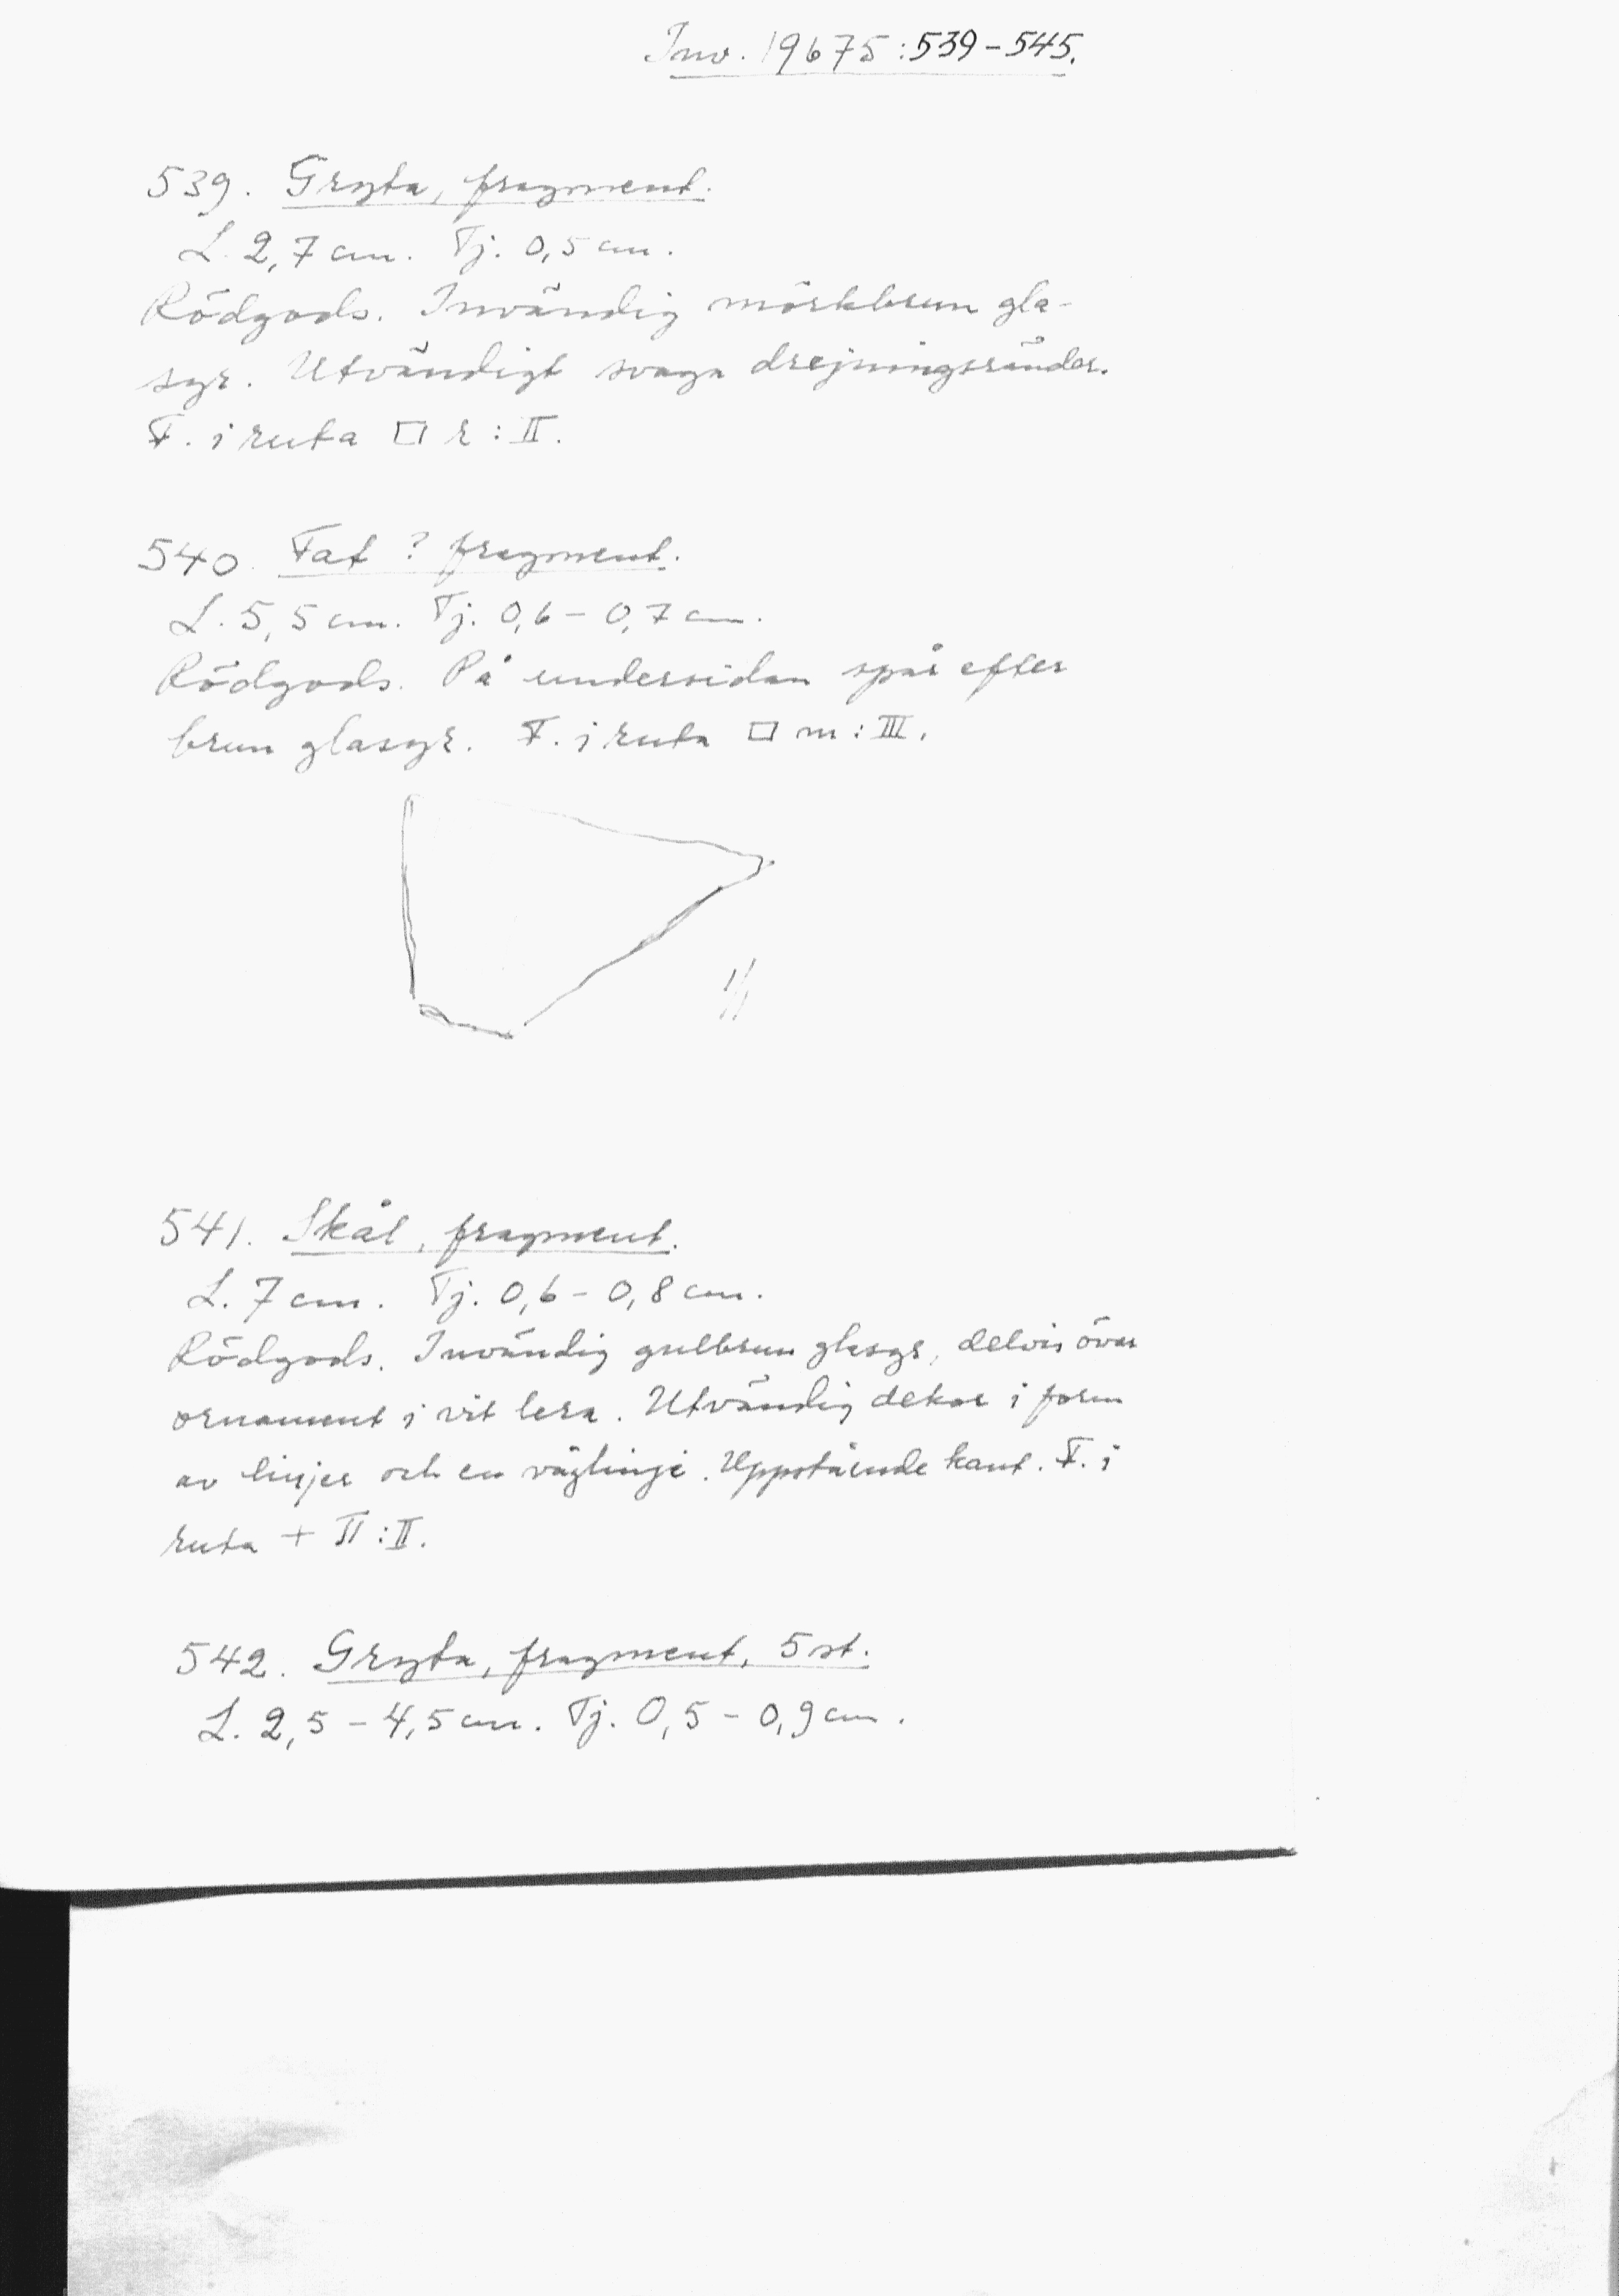 Inv. 19675:539-545.
539. Gryta, fragment.
L. 2,7 cm. Tj. 0,5 cm.
Rödgods. Invändig mörkbrun gla-
syr. Utvändigt svaga drejningsränder.
F. i ruta □ r : II.
540. Fat ? fragment.
L. 5,5 cm. Tj. 0,6 - 0,7 cm.
Rödgods. På undersidan spår efter
brun glasyr. F. i ruta □ m : III.
1/1
541. Skål, fragment.
L. 7 cm. Tj. 0,6 - 0,8 cm.
Rödgods. Invändig gulbrun glasyr, delvis över
ornament i vit lera. Utvändig dekor i form
av linjer och en våglinje. Uppstående kant. F. i
ruta + II : II.
542. Gryta, fragment, 5 st.
L. 2,5 - 4,5 cm. Tj. 0,5 - 0,9 cm.